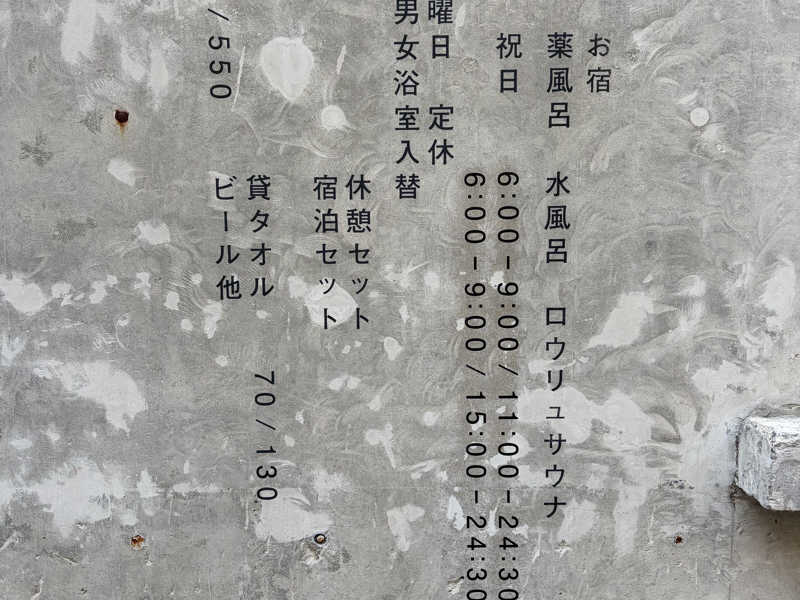 お宿
薬風呂 水風呂 ロウリュサウナ
祝日 6:00-9:00/11:00-24:30
6:00-9:00/15:00-24:30
曜日 定休
男女浴室入替
休憩セット
宿泊セット
貸タオル 70/130
ビール他
/550